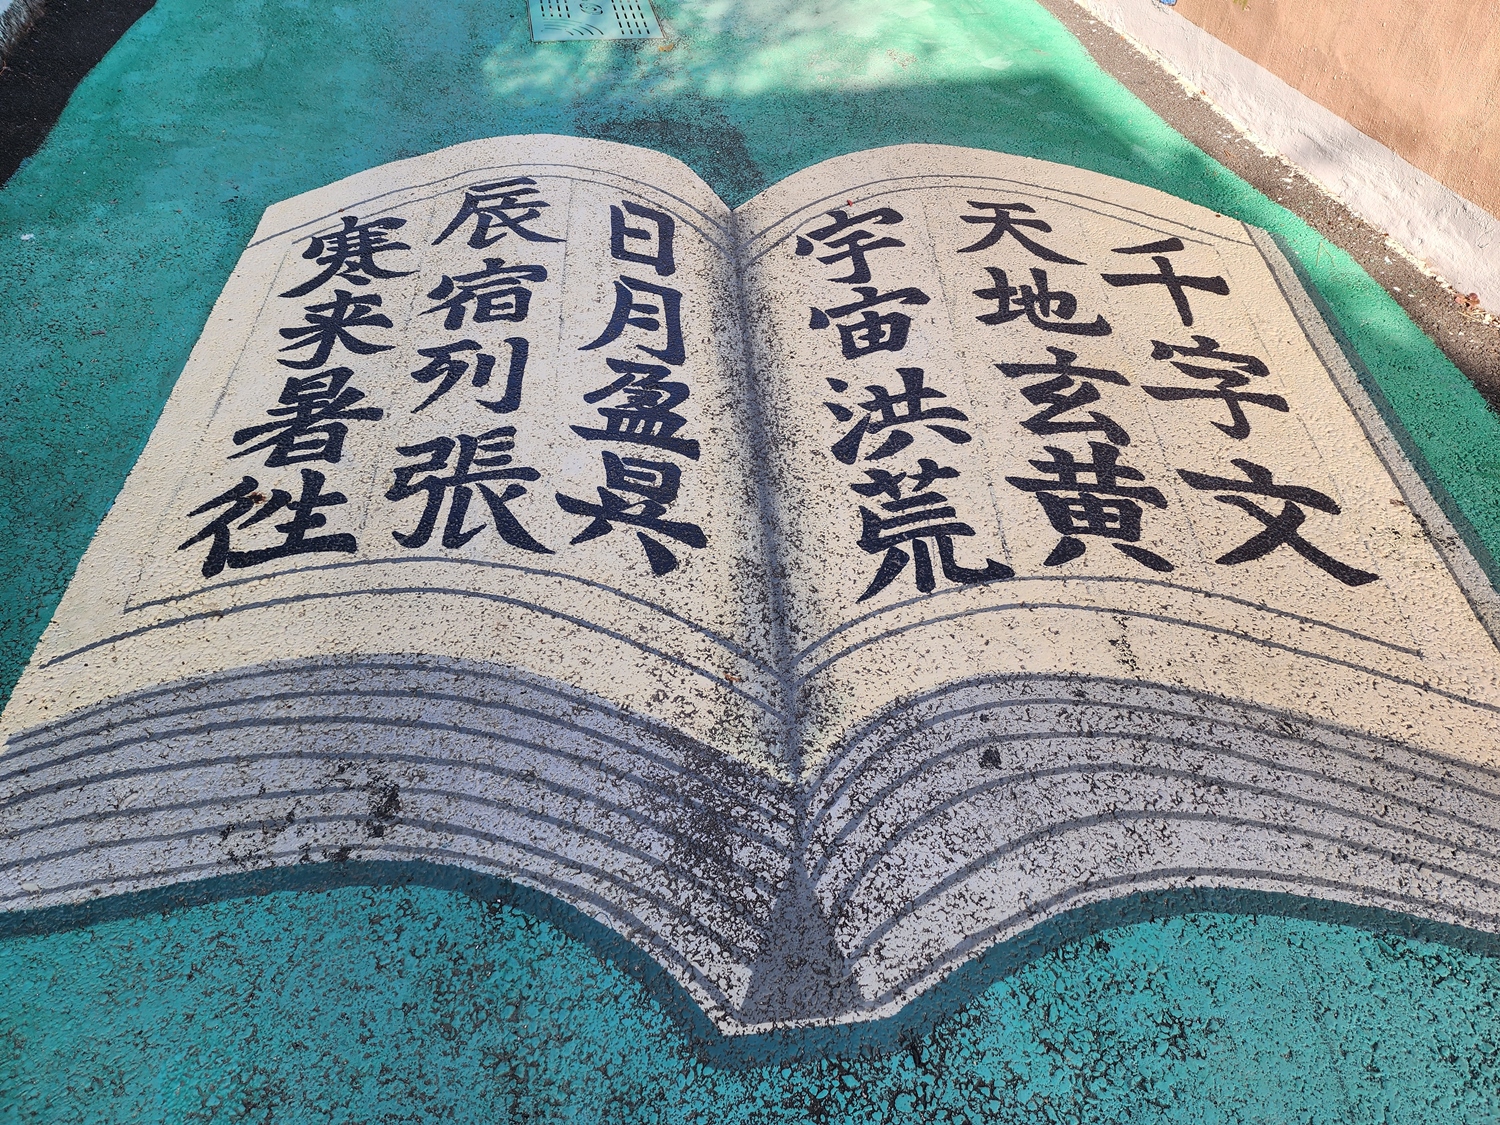 千字文
天地玄黄
宇宙洪荒
日月盈昃
辰宿列張
寒来暑徃